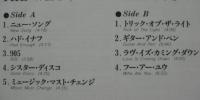 ●Side A
1. ニュー・ソング
New Song
2. ハド・イナフ
Had Enough
3. 905
905
4. シスター・ディスコ
Sister Disco
5. ミュージック・マスト・チェンジ
Music Must Change
●Side B
1. トリック・オブ・ザ・ライト
Trick of the Light
2. ギター・アンド・ペン
Guitar And Pen
3. ラヴ・イズ・カミング・ダウン
Love Is Coming Down
4. フー・アー・ユウ
Who Are You